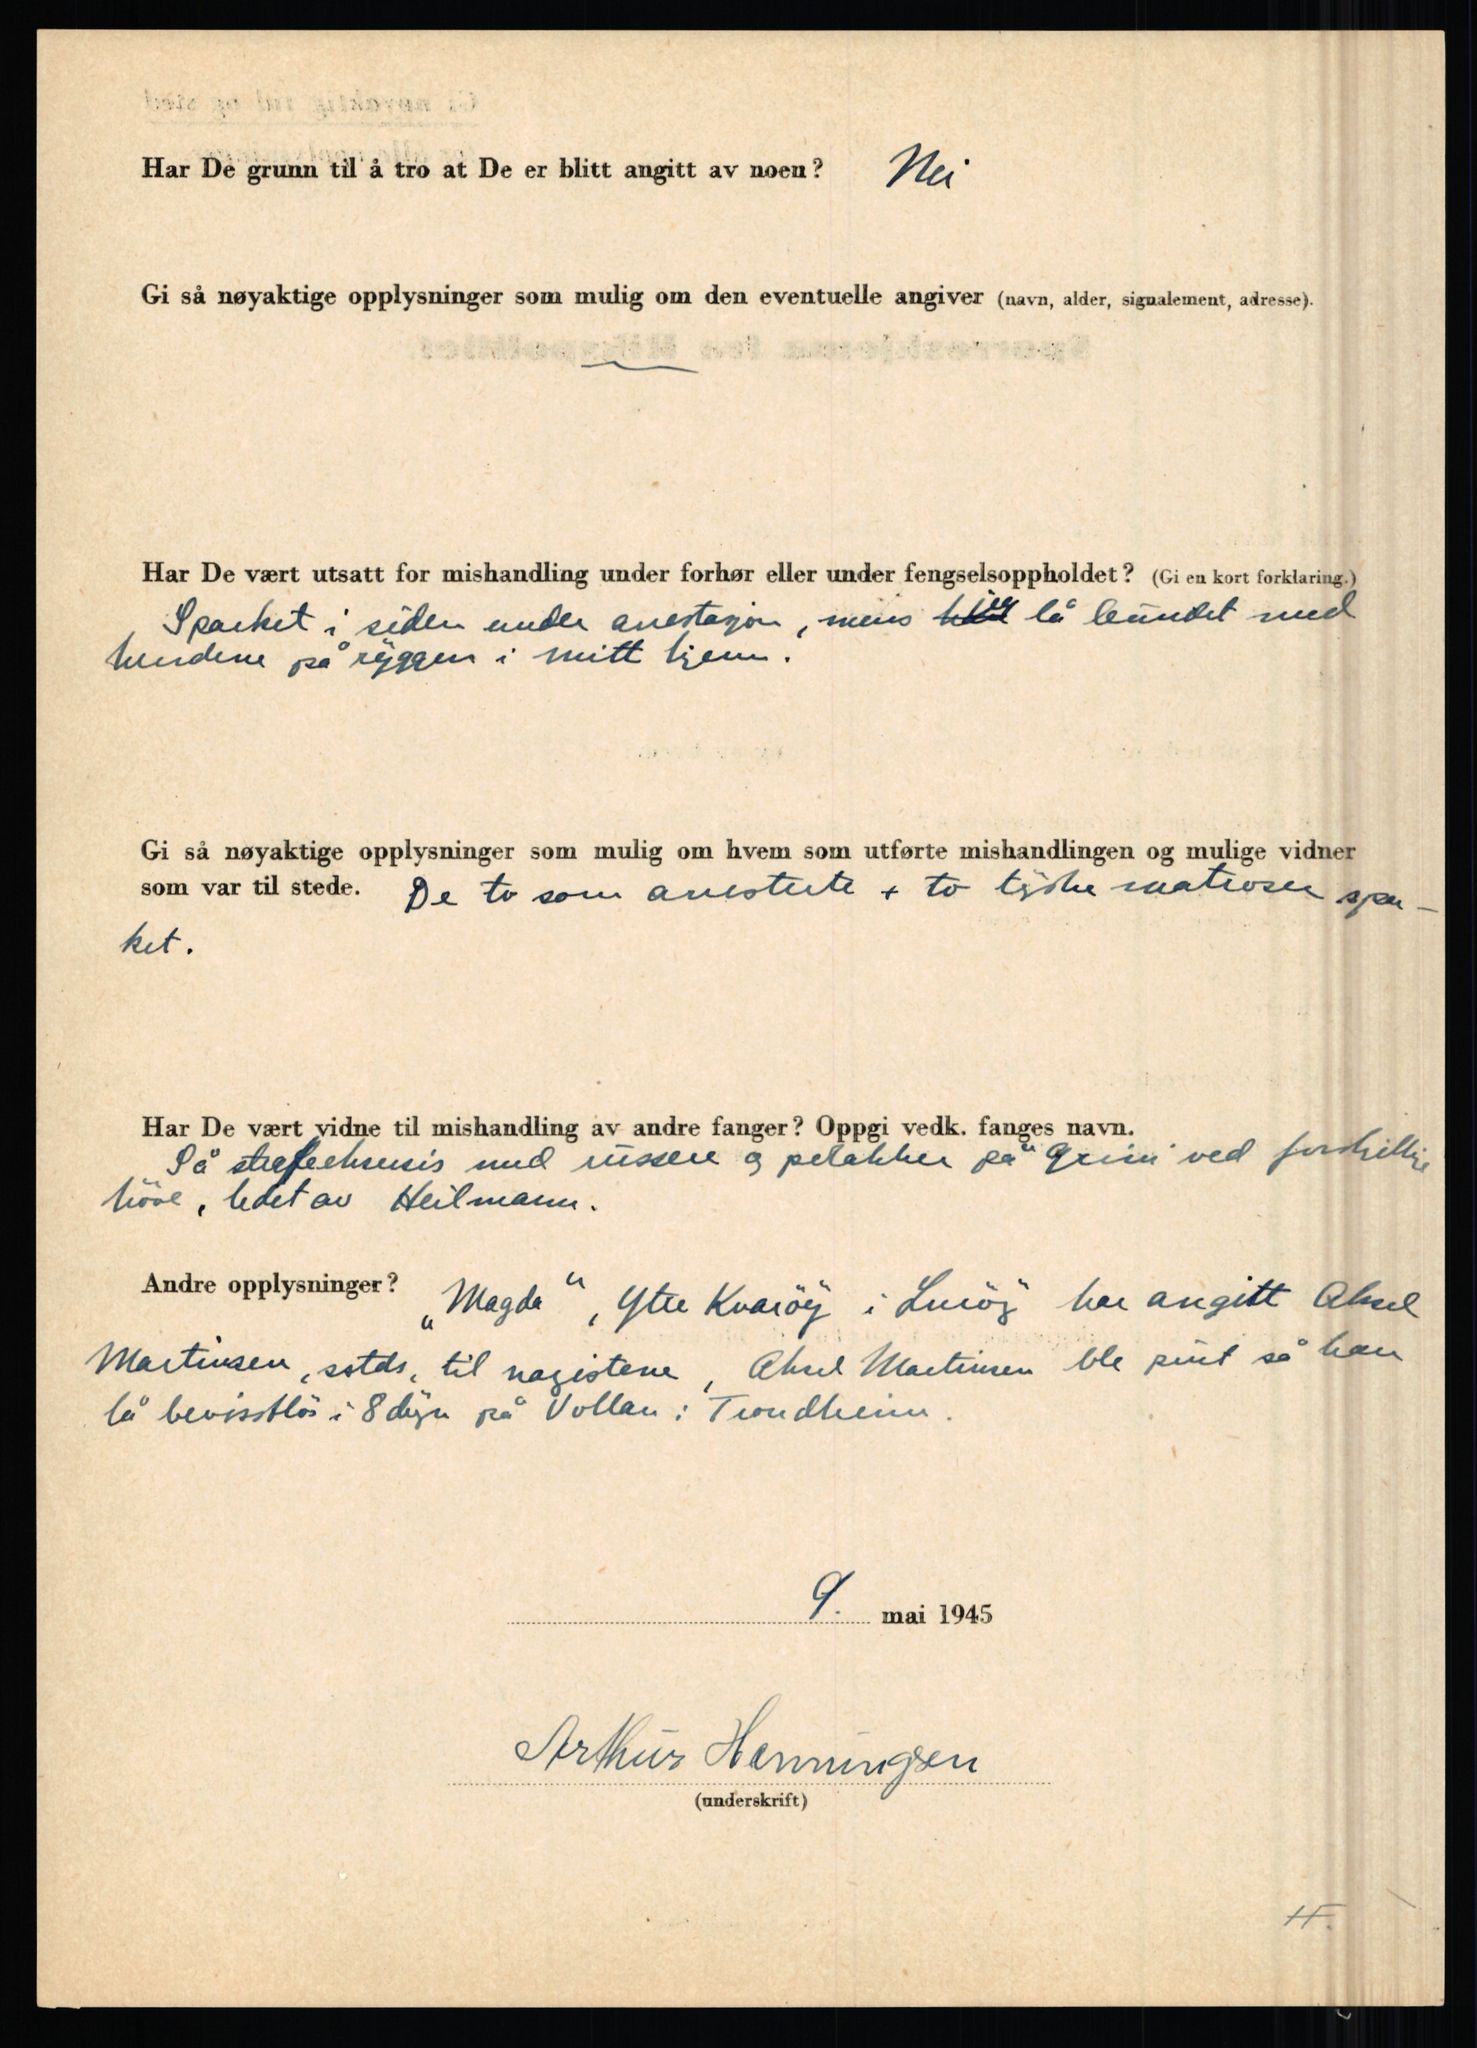 Har De grunn til å tro at De er blitt angitt av noen? Nei
Gi så nøyaktige opplysninger som mulig om den eventuelle angiver (navn, alder, signalement, adresse).
Har De vært utsatt for mishandling under forhør eller under fengselsoppholdet? (Gi en kort forklaring.)
Sparket i siden under arrestasjon, mens jeg lå bundet med
hendene på ryggen i mitt hjem.
Gi så nøyaktige opplysninger som mulig om hvem som utførte mishandlingen og mulige vidner
som var til stede. De to som arresterte + to tyske matroser spar-
ket.
Har De vært vidne til mishandling av andre fanger? Oppgi vedk. fanges navn.
Så straffeeksersis med russere og polakker på Grini ved forskjellige
höve, ledet av Heilmann.
Andre opplysninger? „Magda", Ytre Kvaröy i Luröy har angitt Aksel
Martinsen, sstds, til nazistene, Aksel Martinsen ble pint så han
lå bevisstlös i 8 døgn på Vollan i Trondheim.
9. mai 1945
Arthur Henningsen
(underskrift)
H.